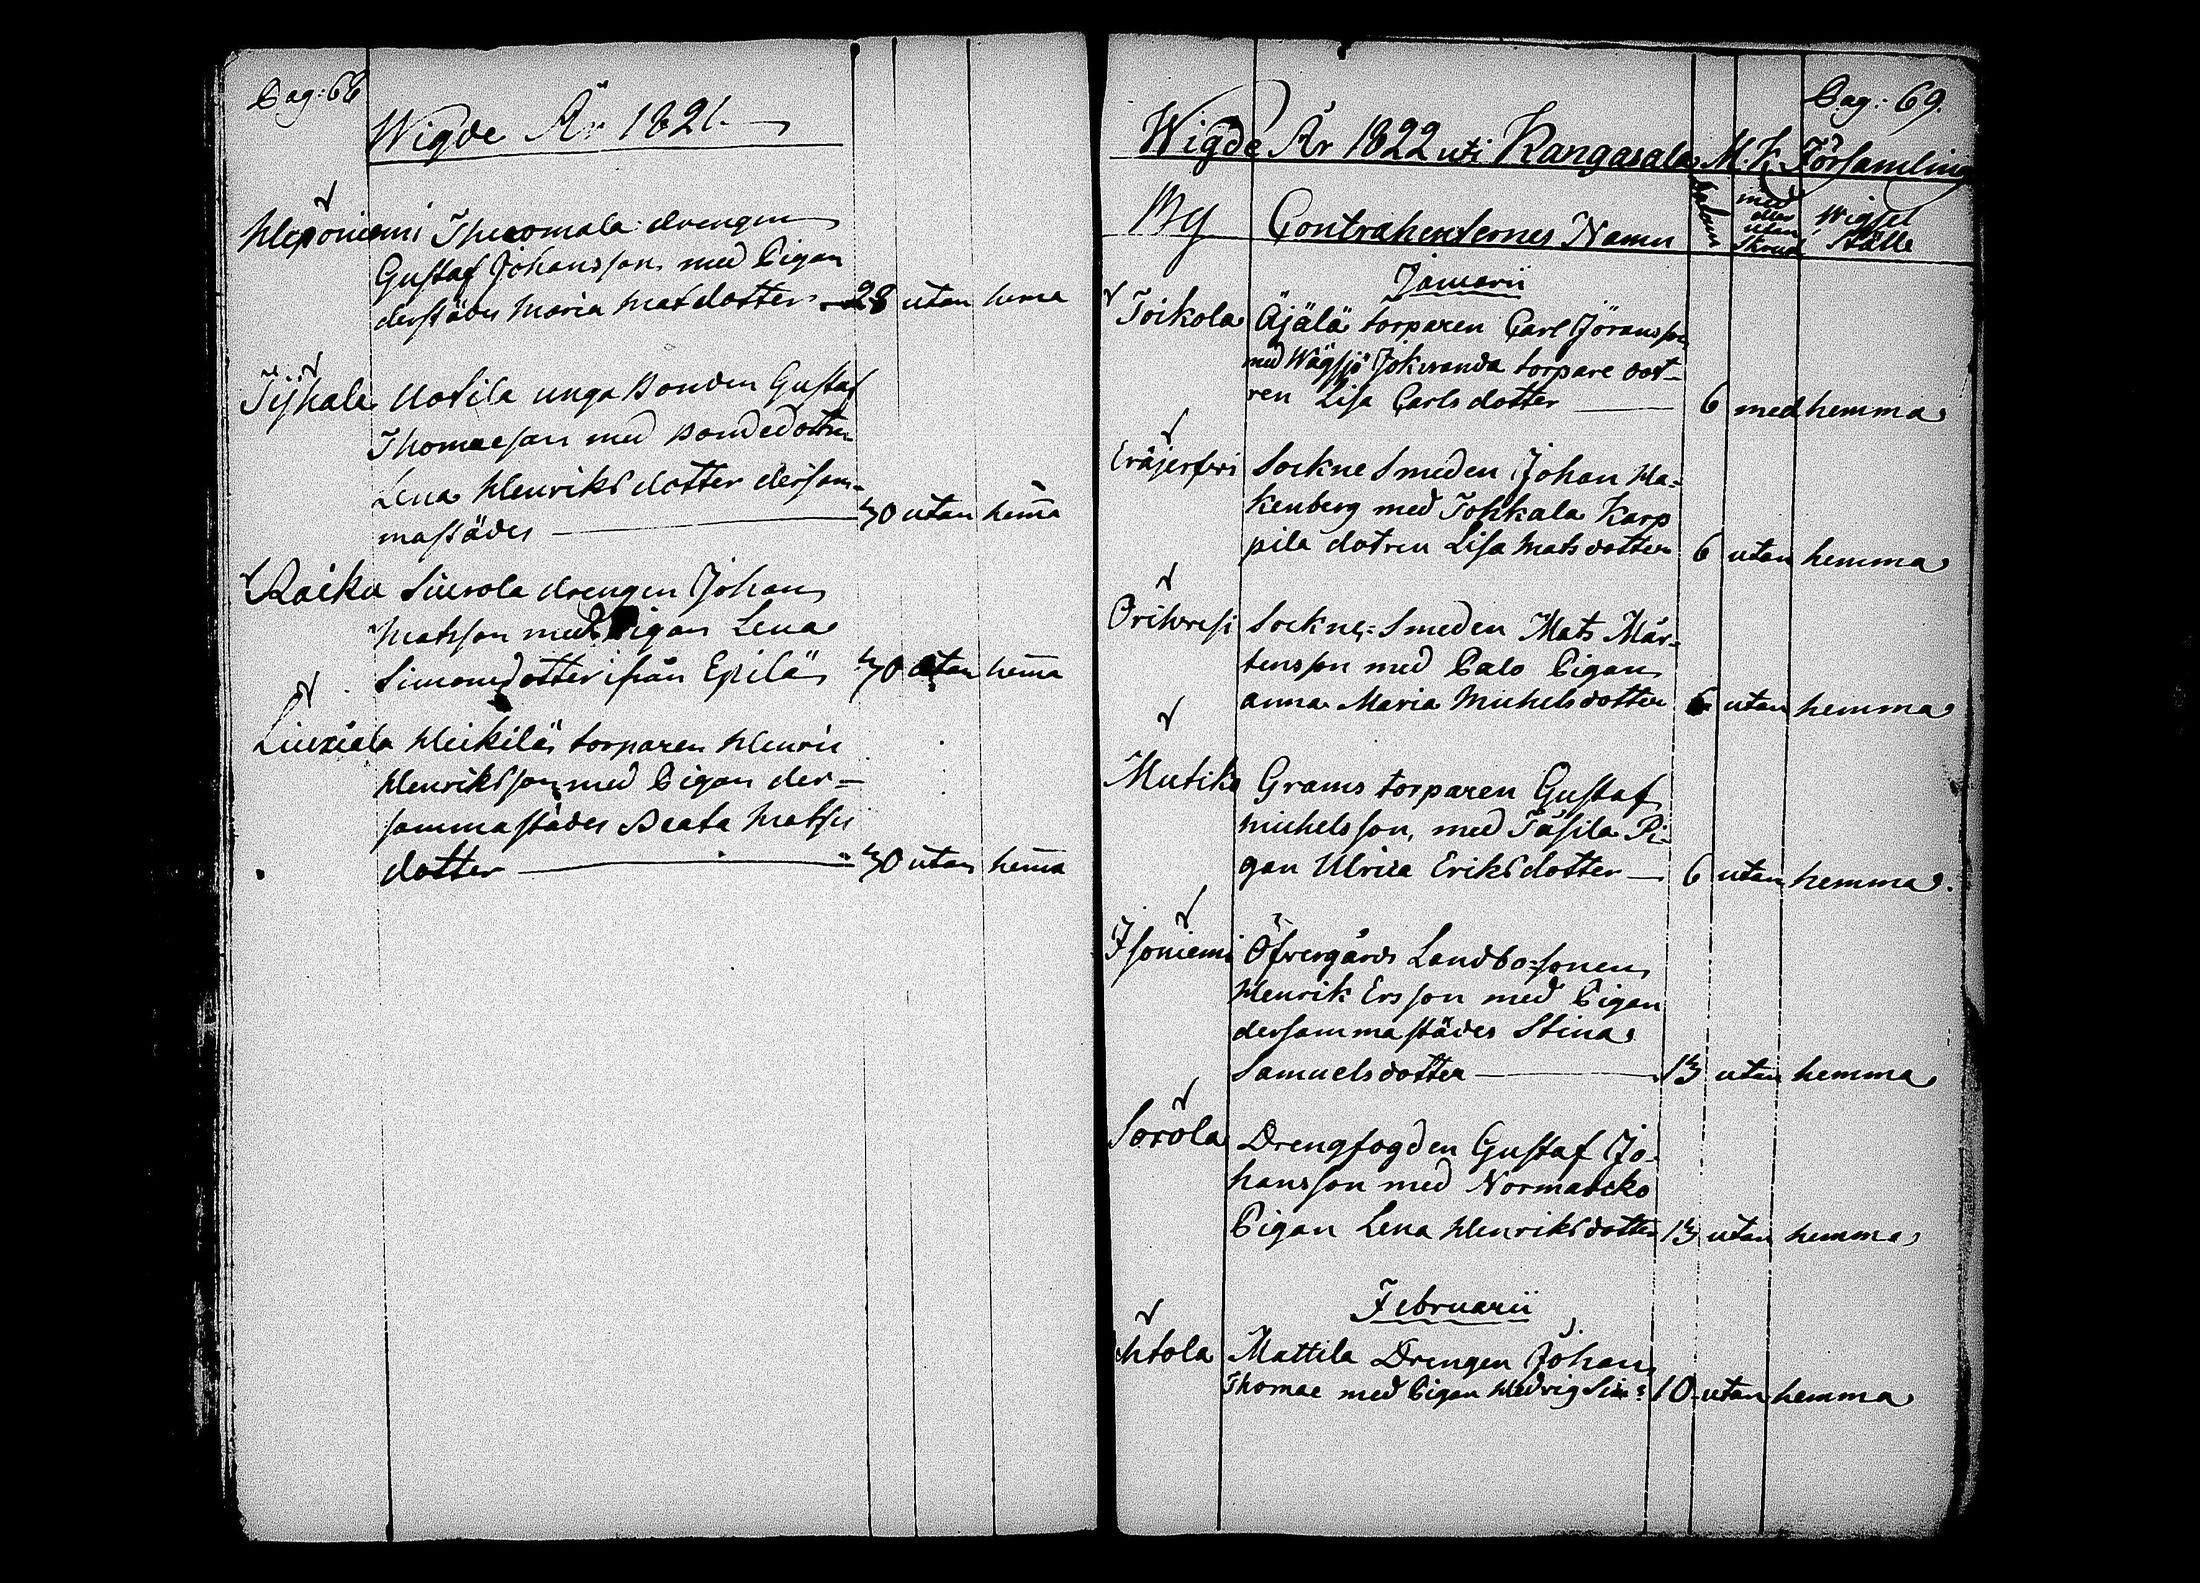 Pag: 68
Wigde År 1821.
Heponiemi Thuomala drengen
Gustaf Johansson med Pigan
derstädes Maria Matsdotter 28 utan hema
Tijhala Uotila unga Bonden Gustaf
Thomasson med Bondedottren
Lena Henriksdotter dersam-
mastädes 30 utan hema
Raiku Suirola drengen Johan
Matsson med Pigan Lena
Simonsdotter ifrån Epilä 30 utan hema
Liuxiala Heikilä torparen Henric
Henriksson med Pigan der-
sammastädes Beata Mats
dotter 30 utan hema
Pag: 69.
Wigde År 1822 uti Kangasala M. K. Församling
By Contrahenternes Namn Datum med eller utan Skrud Wigsel ställe
Januarii
Toikola Äjälä torparen Carl Jöransson
med Wägsjö Jokiranda torpare dott-
ren Lisa Carlsdotter 6 med hemma
Sockne Smeden Johan Ha-
kenberg med Tohkala Karp
pila dotren Lisa Matsdotter 6 utan hemma
Orihvesi Sockne-Smeden Mats Mår-
tensson med Palo Pigan
Anna Maria Michelsdotter 6 utan hemma
Mutiko Grams torparen Gustaf
Michelsson, med Tåsila Pi-
gan Ulrica Eriksdotter 6 utan hemma
Isoniemi Öfvergårds Landbo-sonen
Henrik Ersson med Pigan
dersammastädes Stina
Samuelsdotter 13 utan hemma
Sorola Drengfogden Gustaf Jo-
hansson med Normaicko
Pigan Lena Henriksdotter 13 utan hemma
Februarii
Ahtola Mattila Drengen Johan
Thomae med Pigan Hedvig Sim: 10 utan hemma